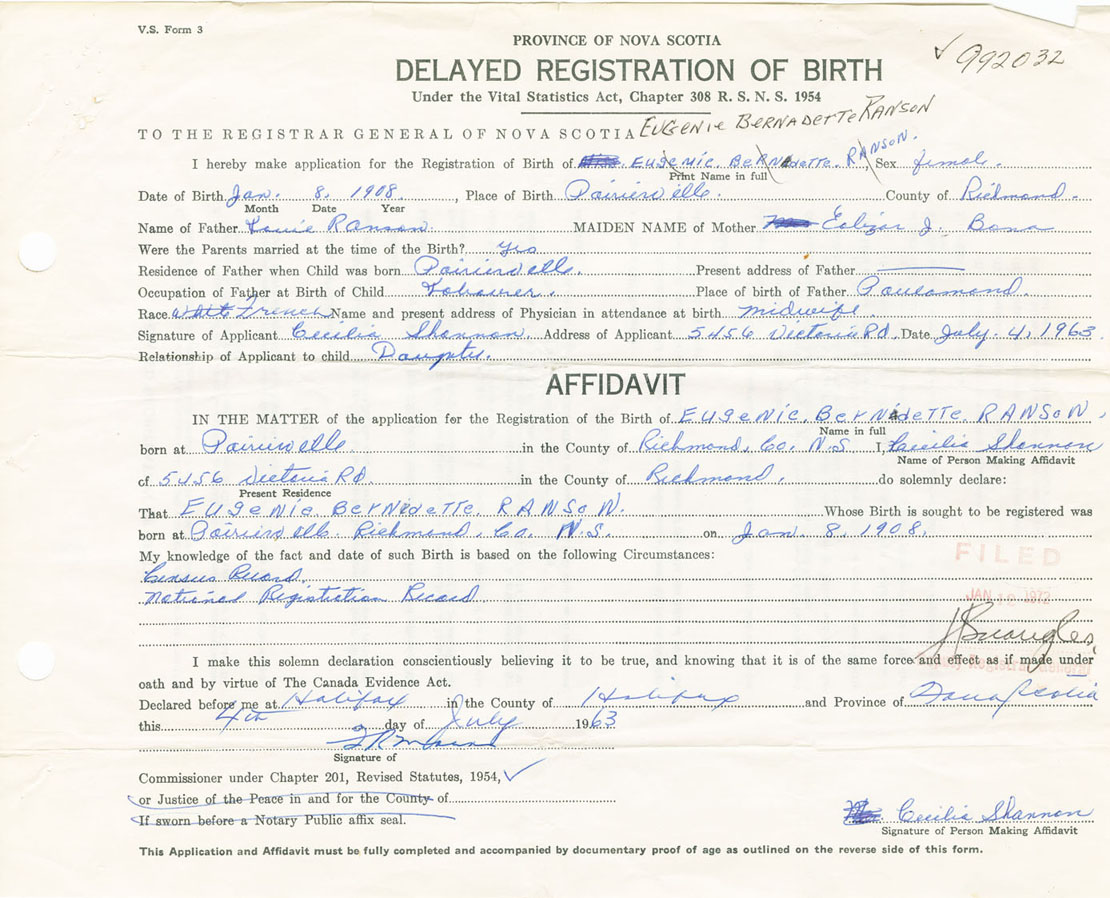 V.S. Form 3
PROVINCE OF NOVA SCOTIA
✓ 992032
DELAYED REGISTRATION OF BIRTH
Under the Vital Statistics Act, Chapter 308 R. S. N. S. 1954
TO THE REGISTRAR GENERAL OF NOVA SCOTIA EUGENIE BERNADETTE RANSON
I hereby make application for the Registration of Birth of EUgeNie. BerNadette. RANSON. Sex female.
Print Name in full
Date of Birth Jan. 8, 1908. , Place of Birth Poirierville. County of Richmond.
Month Date Year
Name of Father Louie Ranson. MAIDEN NAME of Mother J. Bona
Were the Parents married at the time of the Birth? Yes
Residence of Father when Child was born Poirierville. Present address of Father
Occupation of Father at Birth of Child Labourer. Place of birth of Father
Race White French Name and present address of Physician in attendance at birth midwife.
Signature of Applicant Cecilia Shannon. Address of Applicant 5456 Victoria Rd. Date July. 4, 1963.
Relationship of Applicant to child
AFFIDAVIT
IN THE MATTER of the application for the Registration of the Birth of EUgeNie. BerNadette. RANSON.
Name in full
born at Poirierville in the County of Richmond, Co. N.S. I, Cecilia Shannon
Name of Person Making Affidavit
of 5456 Victoria Rd. in the County of Richmond. do solemnly declare:
Present Residence
That EUgeNie. BerNadette. RANSON. Whose Birth is sought to be registered was
born at Poirierville Richmond. Co. N.S. on Jan. 8, 1908.
My knowledge of the fact and date of such Birth is based on the following Circumstances:
FILED
Census Record.
National Registration Record
JAN 12 1972
I make this solemn declaration conscientiously believing it to be true, and knowing that it is of the same force and effect as if made under
oath and by virtue of The Canada Evidence Act.
Declared before me at Halifax in the County of Halifax and Province of Nova Scotia
this 4th day of July 1963
Signature of
Commissioner under Chapter 201, Revised Statutes, 1954, ✓
or Justice of the Peace in and for the County of
If sworn before a Notary Public affix seal.
Cecilia Shannon
Signature of Person Making Affidavit
This Application and Affidavit must be fully completed and accompanied by documentary proof of age as outlined on the reverse side of this form.